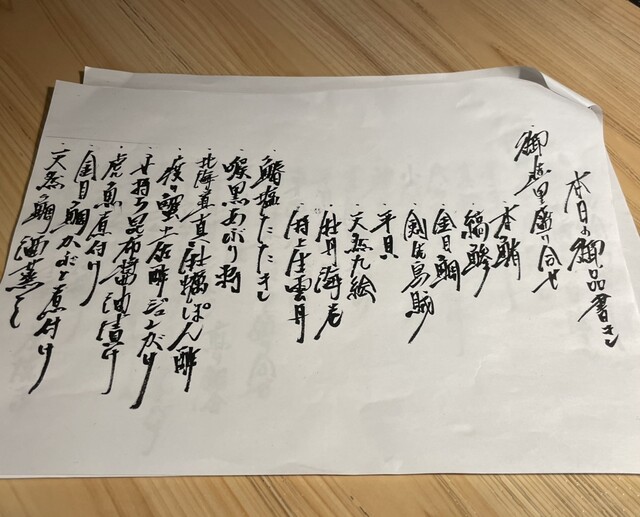 本日の御品書き
・御造里盛り合せ
・本鮪
・縞鯵
・金目鯛
・剣先烏賊
・平貝
・天然九絵
・牡丹海老
・特上生雲丹
・鰆塩たたき
・喉黒あぶり
・北海道真牡蠣ぽん酢
・渡り蟹土佐酢ジュレがけ
・子持ち昆布醤油漬け
・虎魚煮付け
・金目鯛かぶと煮付け
・天然の鯛酒蒸し